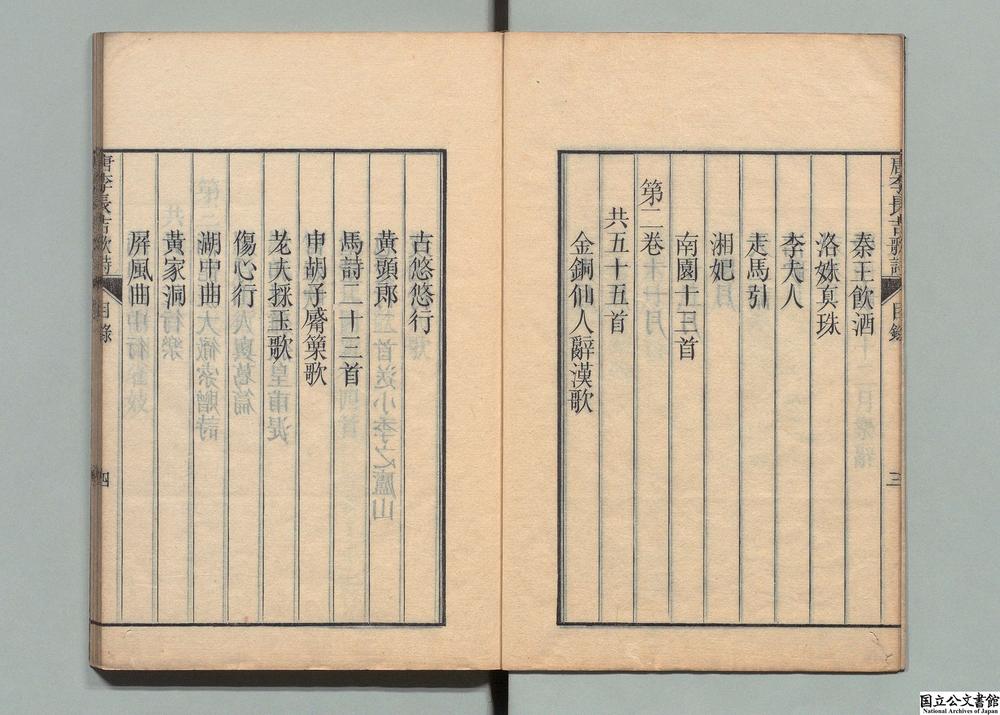 秦王飲酒
洛姝真珠
李夫人
走馬引
湘妃
南園十三首
第二卷
共五十五首
金銅仙人辭漢歌
唐李長吉歌詩
目錄
三
古悠悠行
黃頭郎
馬詩二十三首
申胡子觱篥歌
老夫採玉歌
傷心行
湖中曲
黃家洞
屏風曲
唐李長吉歌詩
目錄
四
国立公文書館
National Archives of Japan